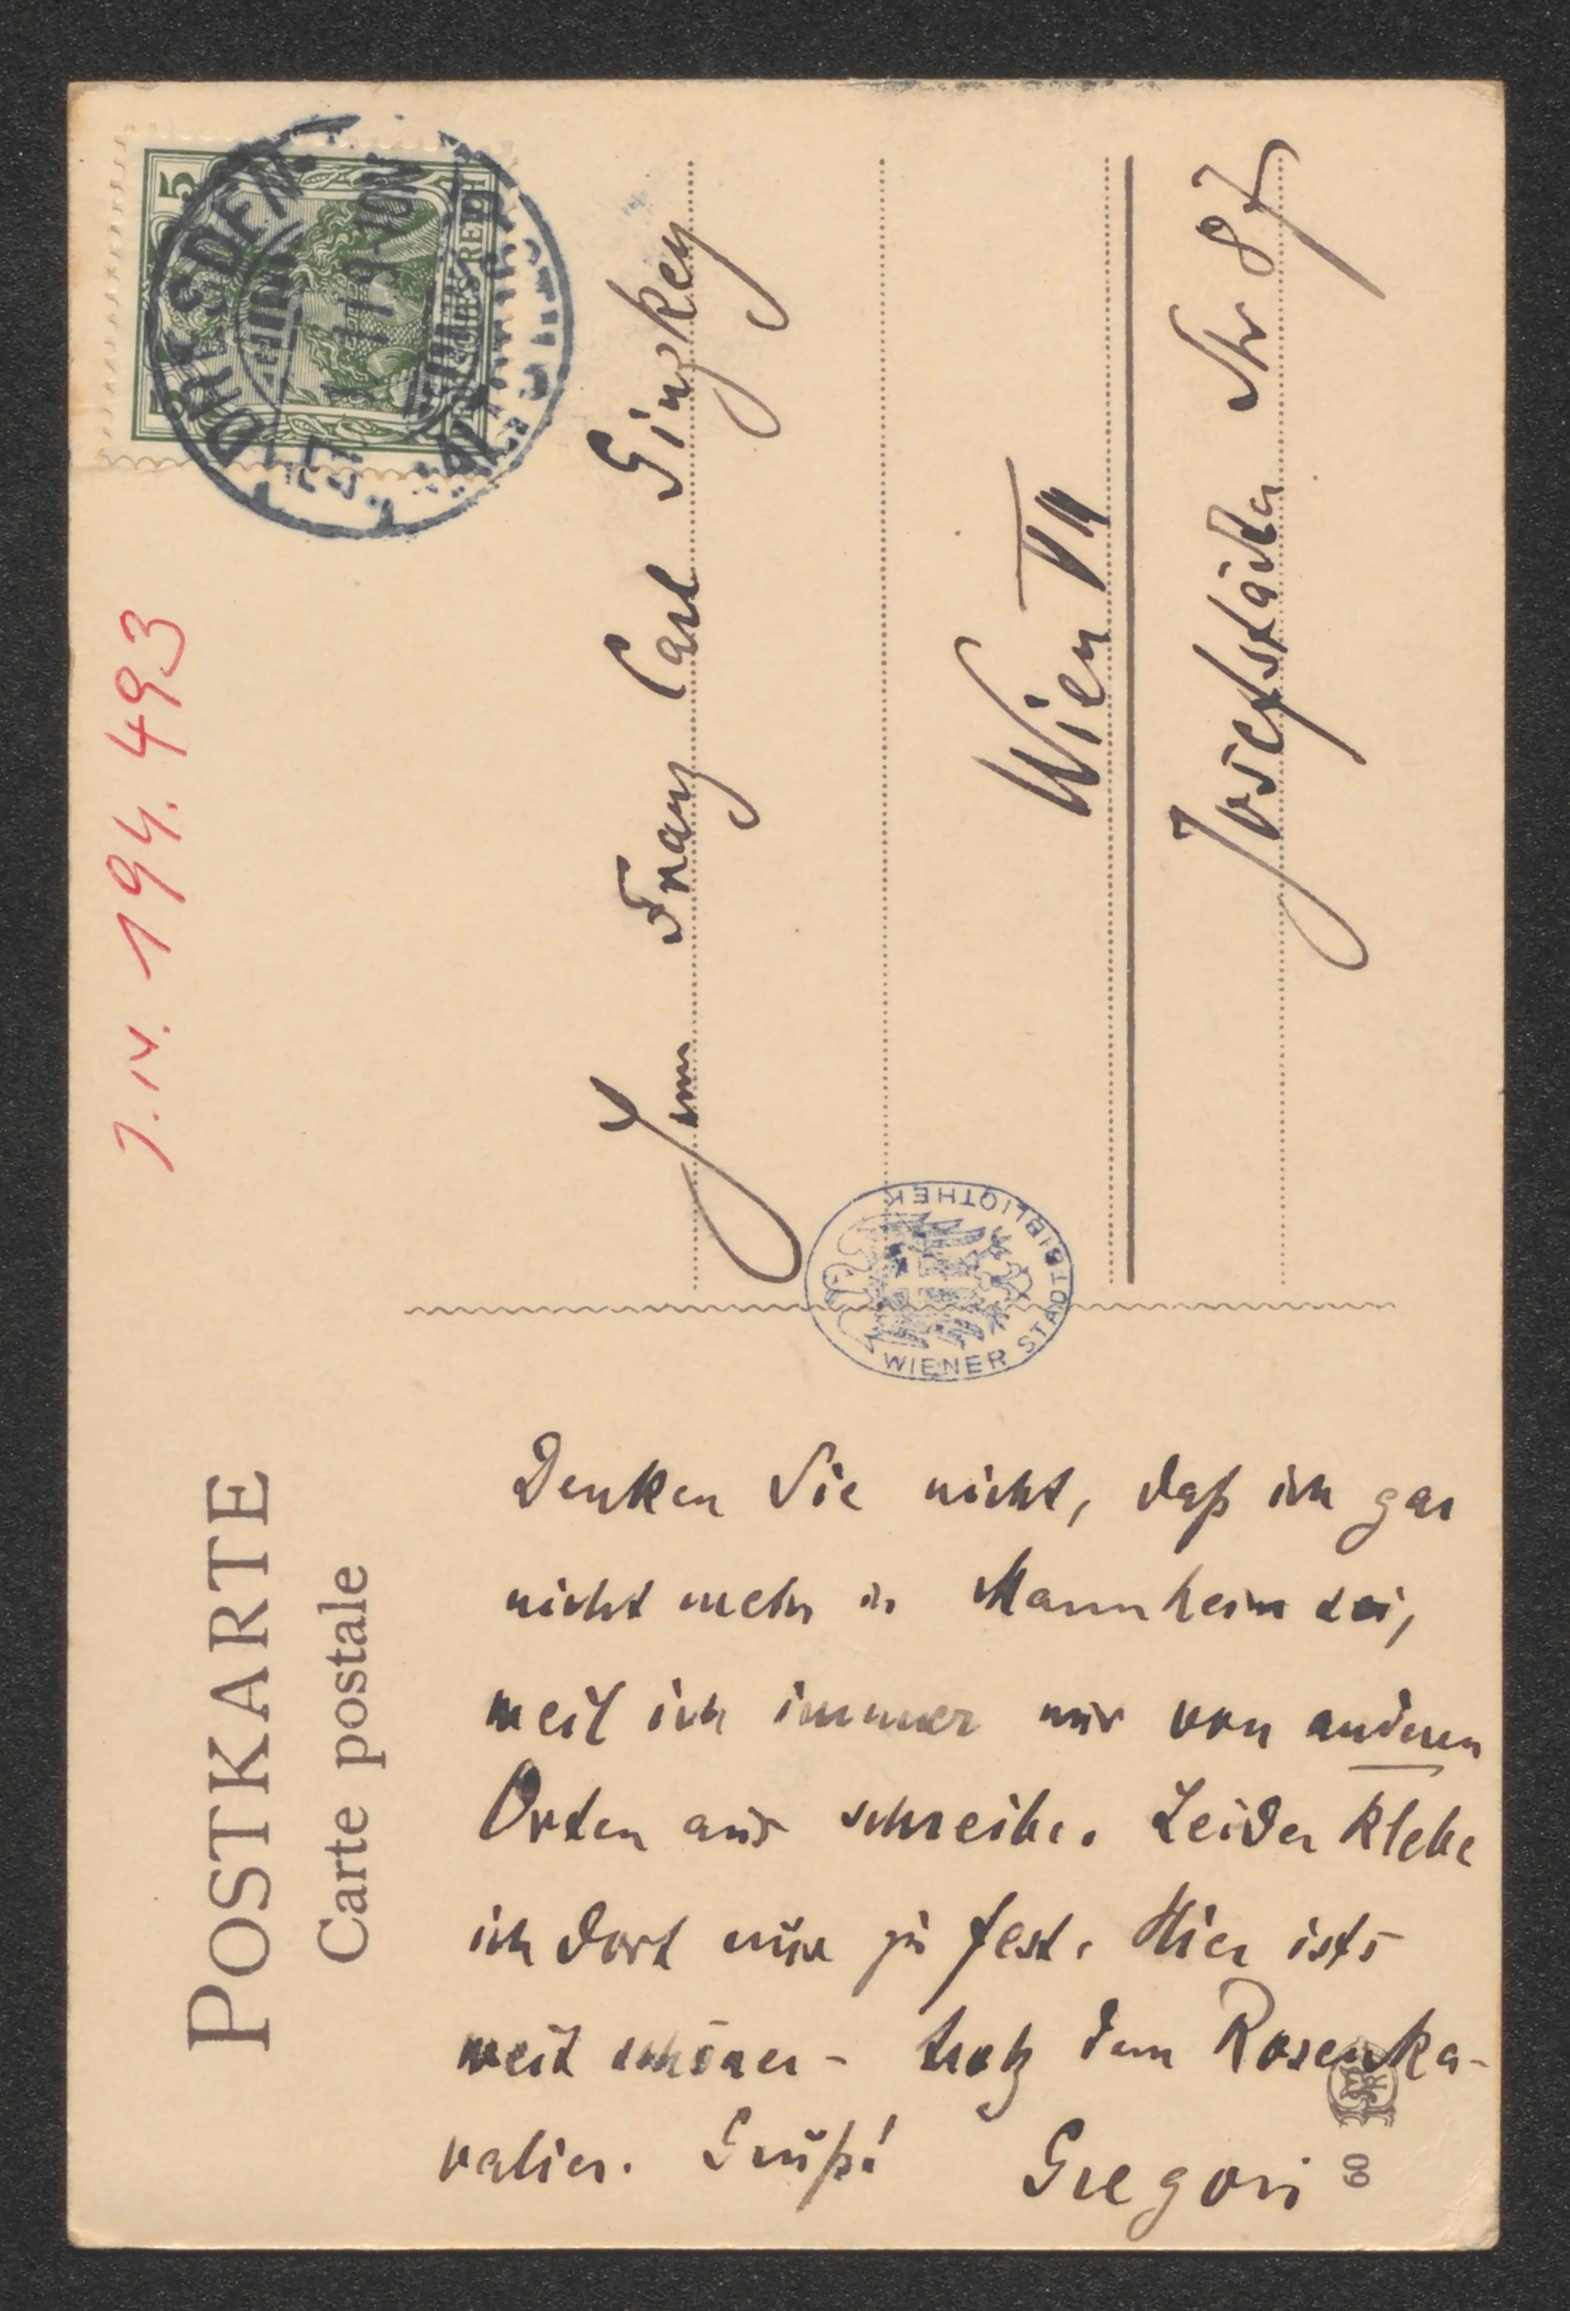 POSTKARTE
Carte postale
J. N. 194.493
DRESDEN
5
DEUTSCHES REICH
Franz Carl Ginzkey
Wien VIII
Josefstädter Str 87
WIENER STADTBIBLIOTHEK
Denken Sie nicht, daß ich gar
nicht mehr in Mannheim sei,
weil ich immer nur von anderen
Orten aus schreibe. Leider klebe
ich dort nur zu fest. Hier ists
weit schöner - trotz dem Rosenka-
valier. Gruß! Gregori
60